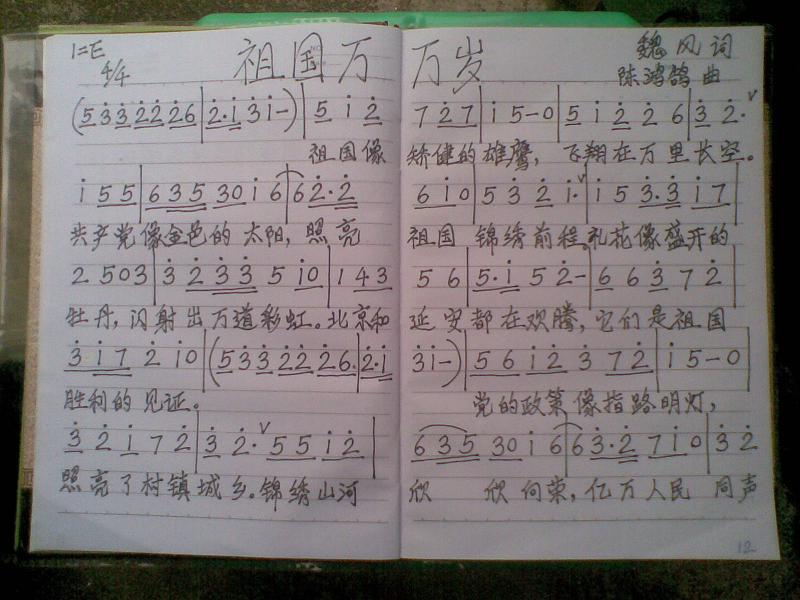 1=E 祖国万 万岁 魏风 词
4/4 陈鸿鸽 曲
(5̣ 3̇ 3̇ 2̇ 2̇ 2̇ 6 | 2̇· 1̇ 3̇ 1̇ –) | 5 1̇ 2̇ 7 2̇ 7 | 1̇ 5 – 0 | 5 1̇ 2̇ 2̇ 6 | 3̇ 2̇· ∨
祖国像 矫健的雄鹰，飞翔在万里长空。
1̇ 5 5 | 6 3 5 3 0 1̇ 6 | 6 2̇· 2̇ 6 1̇ 0 | 5 3̇ 2̇ 1̇· ∨ | 1̇ 5 3̇· 3̇ 1̇ 7
共产党像金色的太阳，照亮 祖国 锦绣前程。礼花像盛开的
2 5 0 3 | 3̇ 2̇ 3̇ 3̇ 5 1̇ 0 | 1 4 3 5 6 | 5· 1̇ 5 2̇ – | 6 6 3̇ 7 2̇
牡丹，闪射出万道彩虹。北京和 延安都在欢腾，它们是祖国
3̇ 1̇ 7 2̇ 1̇ 0 | (5 3̇ 3̇ 2̇ 2̇ 2̇ 6 | 2̇· 1̇ 3̇ 1̇ –) | 5 6 1̇ 2̇ 3̇ 7 2̇ | 1̇ 5 – 0
胜利的见证。 党的政策像指路明灯，
3̇ 2̇ 1̇ 7 2̇ | 3̇ 2̇· ∨ 5 5 1̇ 2̇ | 6 3 5 3 0 1̇ 6 | 6 3̇· 2̇ 7 1̇ 0 | 3̇ 2̇
照亮了村镇城乡。锦绣山河 欣 欣向荣，亿万人民 同声
12